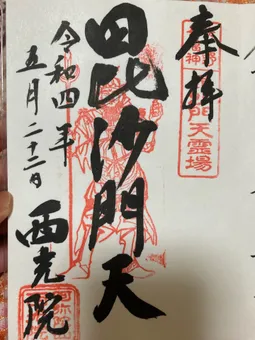 奉拝
毘沙門天
令和四年
五月二十二日
西光院
門天霊場